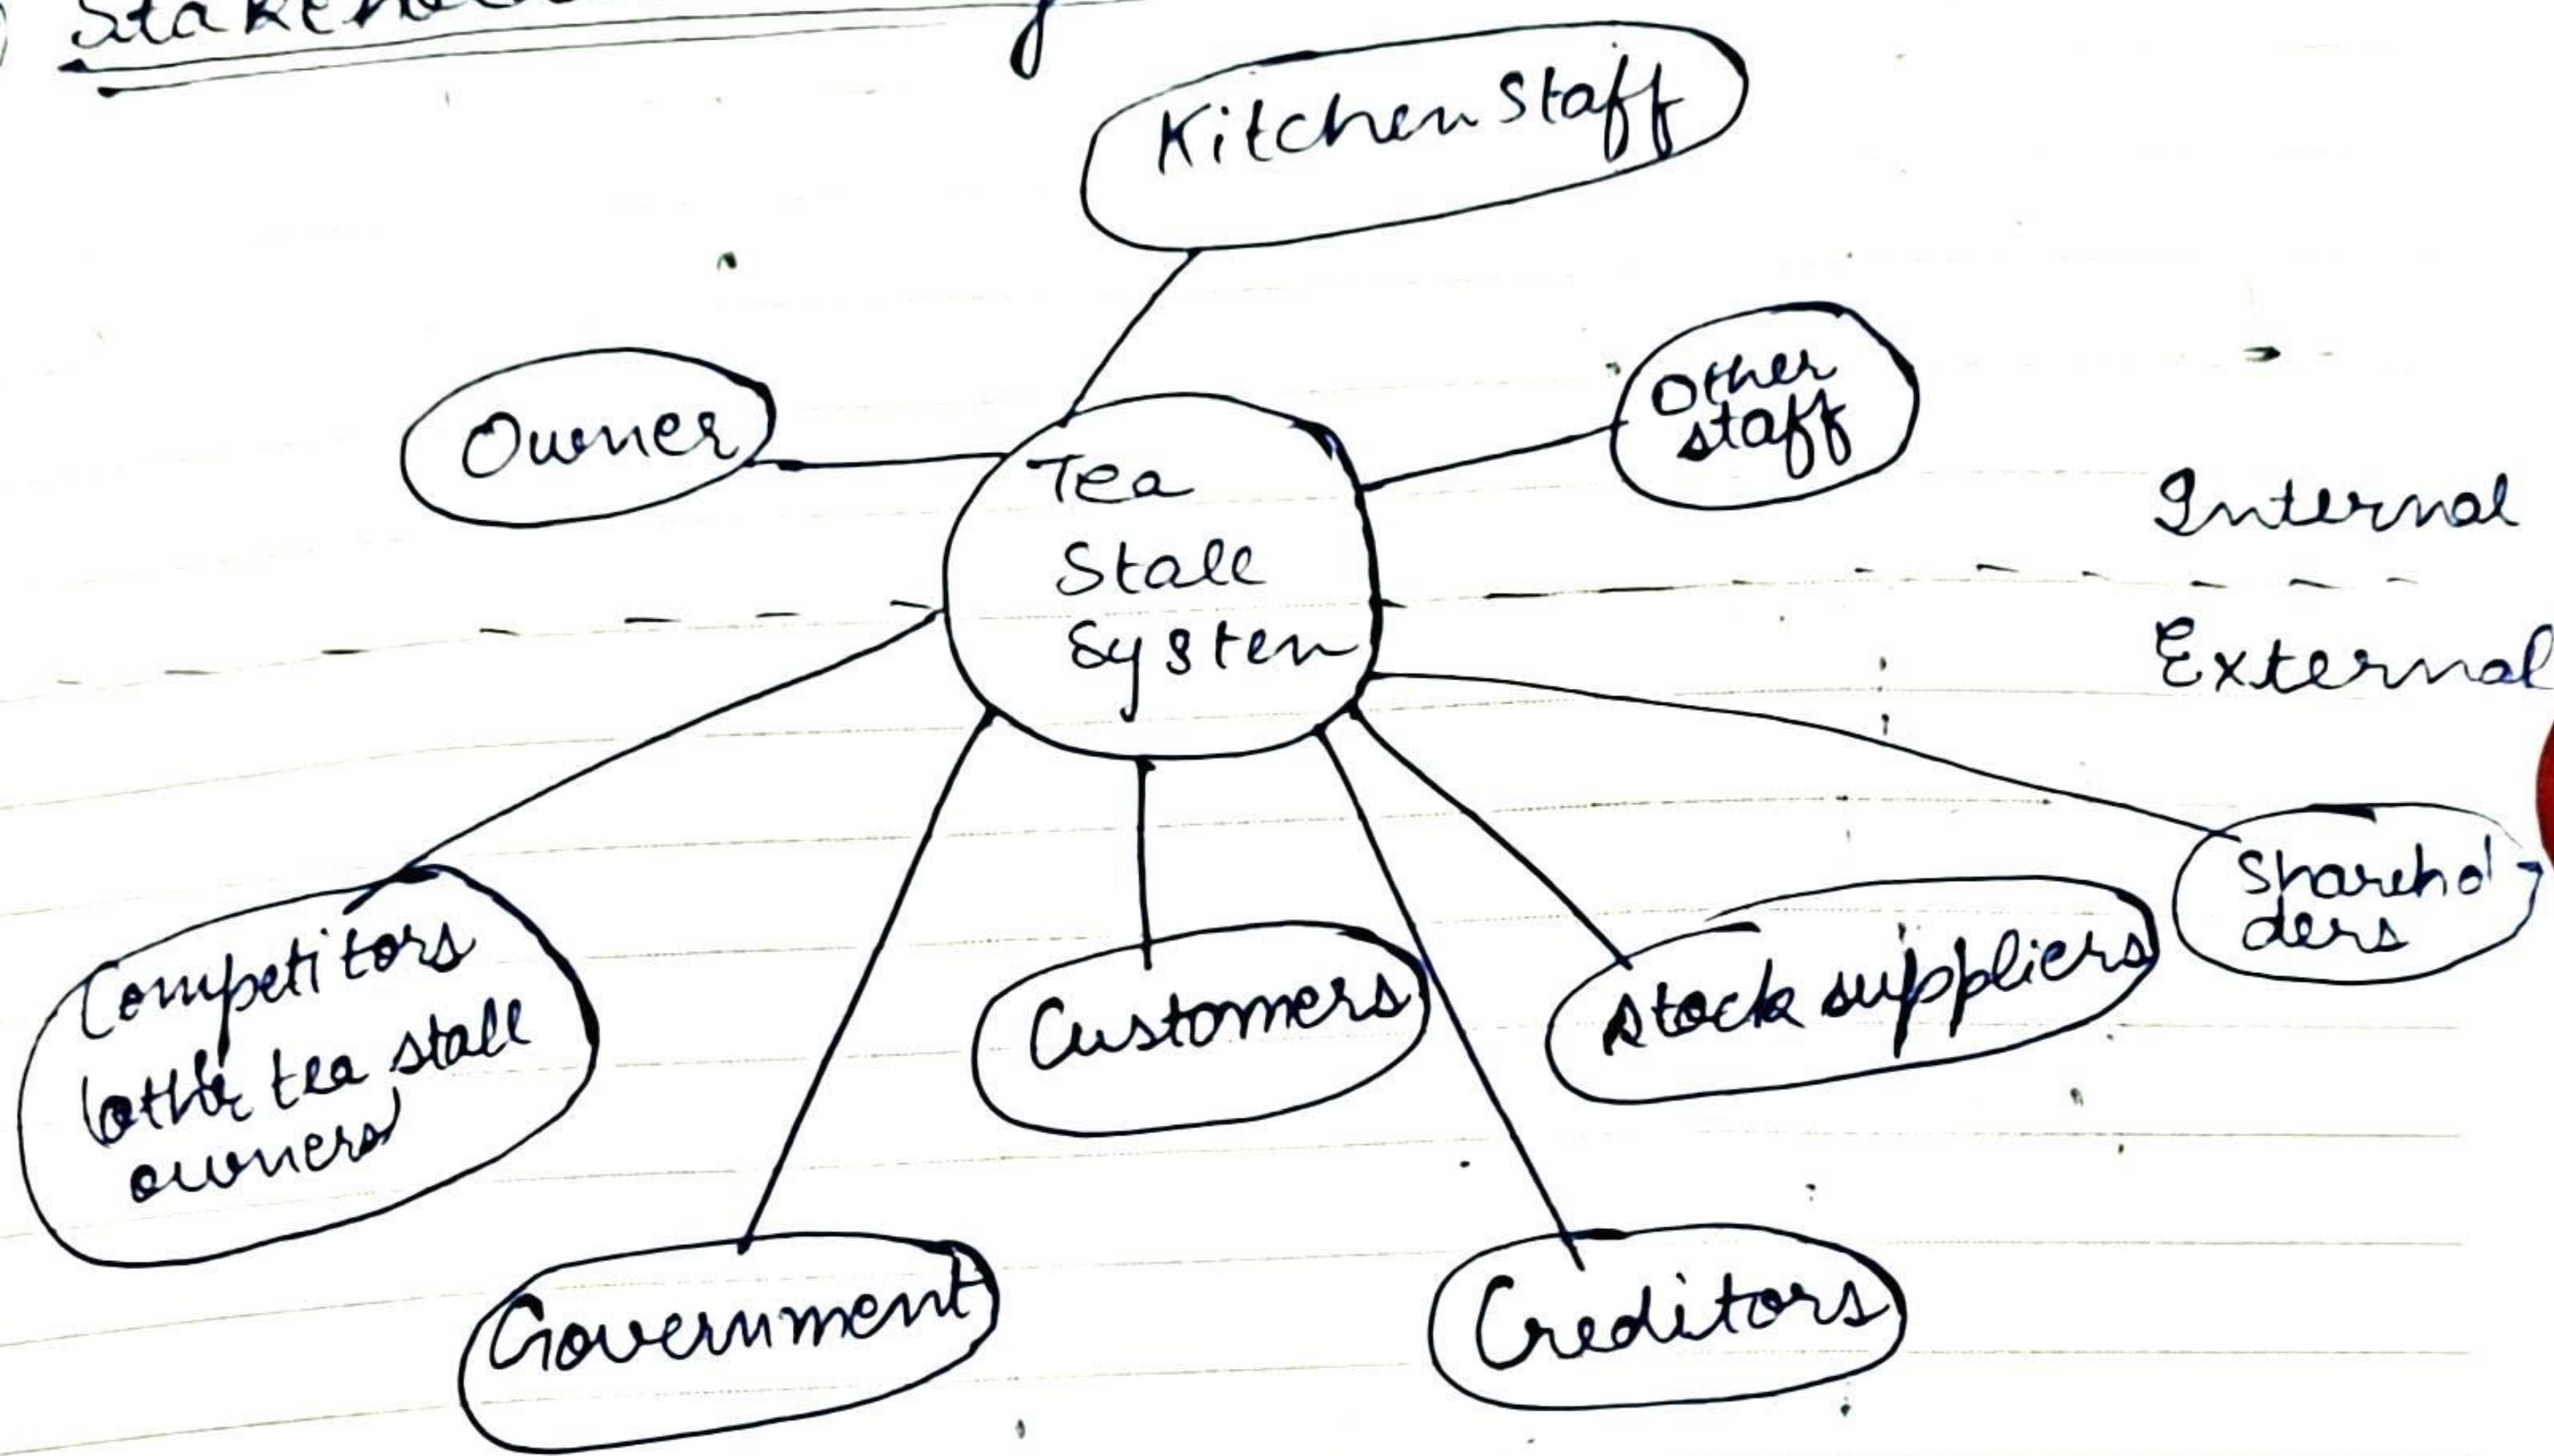 Kitchen Staff
Owner
Other
staff
Tea
Stall
System
Internal
External
Sharehol
ders
Competitors
(other tea stall
owners)
Customers
Stock suppliers
Government
Creditors